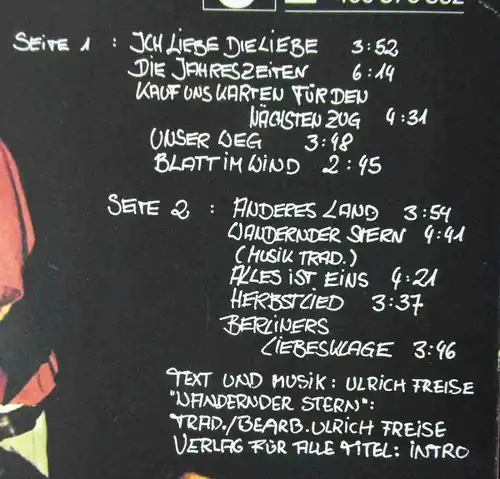 SEITE 1 : ICH LIEBE DIE LIEBE 3:52
DIE JAHRESZEITEN 6:14
KAUF UNS KARTEN FÜR DEN
NÄCHSTEN ZUG 4:31
UNSER WEG 3:48
BLATT IM WIND 2:45
SEITE 2 : ANDERES LAND 3:54
WANDERNDER STERN 4:41
(MUSIK TRAD.)
ALLES IST EINS 4:21
HERBSTLIED 3:37
BERLINERS
LIEBESKLAGE 3:46
TEXT UND MUSIK: ULRICH FREISE
"WANDERNDER STERN":
TRAD./BEARB. ULRICH FREISE
VERLAG FÜR ALLE TITEL: INTRO